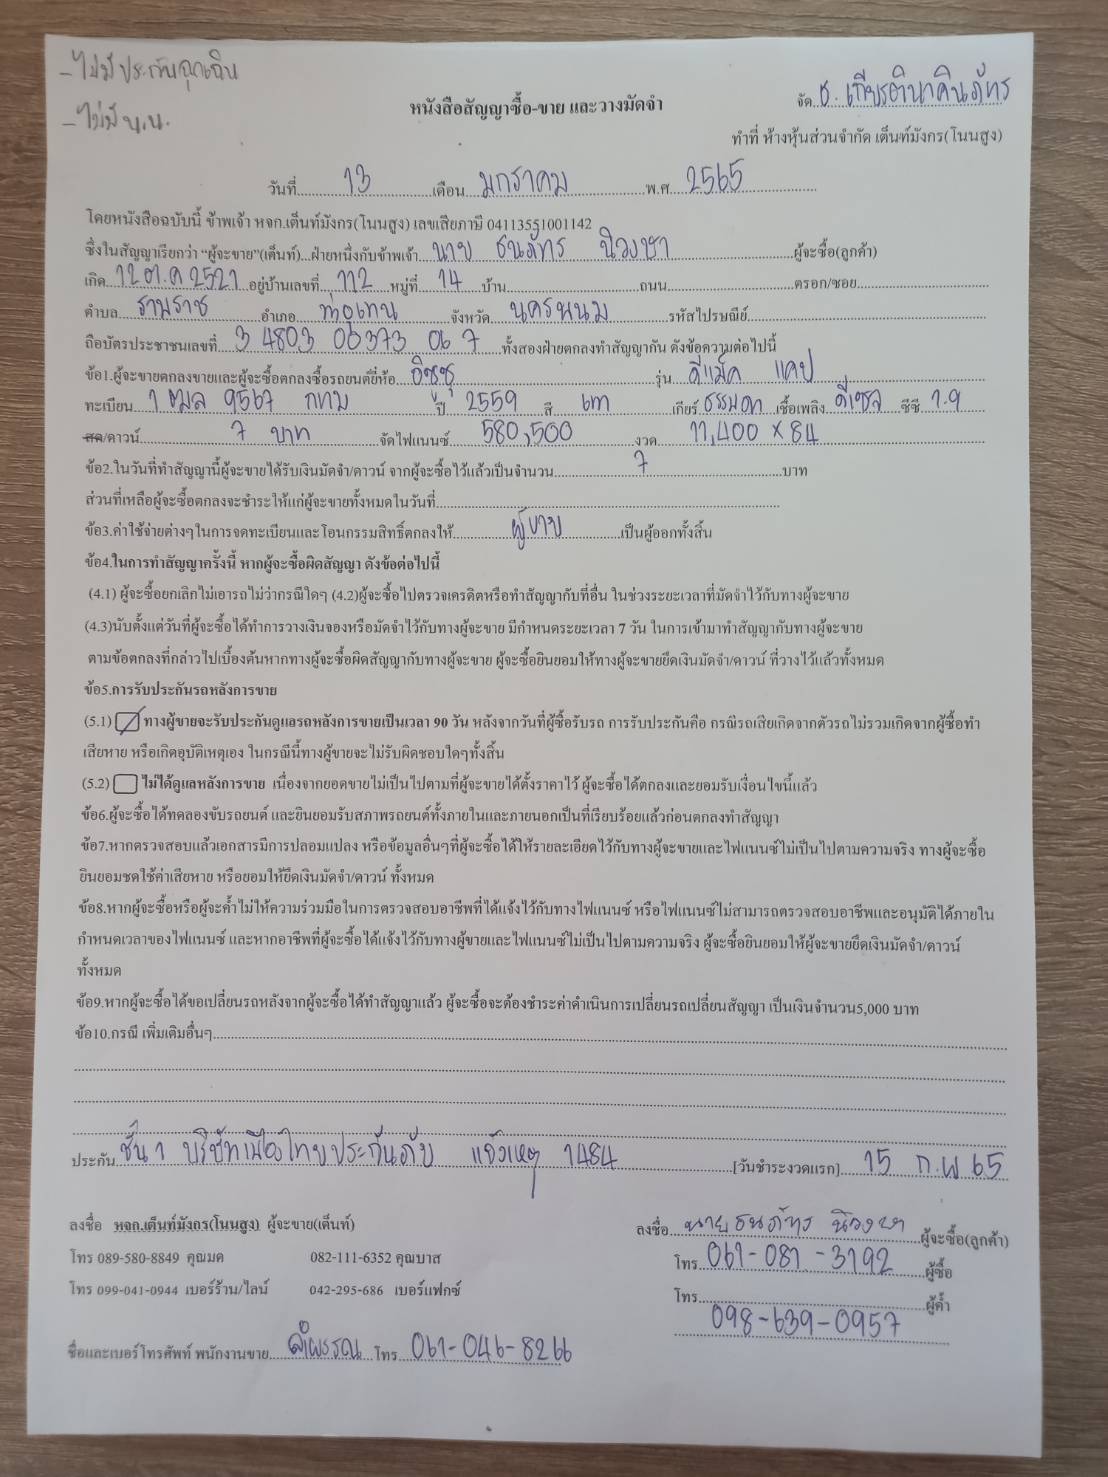 -ไม่มีประกันฉุกเฉิน
-ไม่มี พ.บ.
จัด ธ. เกียรตินาคินภัทร
หนังสือสัญญาซื้อ-ขาย และวางมัดจำ
ทำที่ ห้างหุ้นส่วนจำกัด เต็นท์มังกร(โนนสูง)
วันที่ 13 เดือน มกราคม พ.ศ. 2565
โดยหนังสือฉบับนี้ ข้าพเจ้า หจก.เต็นท์มังกร(โนนสูง) เลขเสียภาษี 04113551001142
ซึ่งในสัญญาเรียกว่า “ผู้จะขาย”(เต็นท์)...ฝ่ายหนึ่งกับข้าพเจ้า นาย ธนภัทร นิวงษา ผู้จะซื้อ(ลูกค้า)
เกิด 12 ต.ค 2521 อยู่บ้านเลขที่ 112 หมู่ที่ 14 บ้าน ถนน ตรอก/ซอย
ตำบล รามราช อำเภอ ท่อุเทน จังหวัด นครพนม รหัสไปรษณีย์
ถือบัตรประชาชนเลขที่ 3 4803 00373 06 7 ทั้งสองฝ่ายตกลงทำสัญญากัน ดังข้อความต่อไปนี้
ข้อ1.ผู้จะขายตกลงขายและผู้จะซื้อตกลงซื้อรถยนต์ยี่ห้อ อีซูซุ รุ่น ดีแม็ค แคป
ทะเบียน 1 ฒล 9567 กทม ปี 2559 สี เทา เกียร์ ธรรมดา เชื้อเพลิง ดีเซล ซีซี 1.9
สด/ดาวน์ 7 บาท จัดไฟแนนซ์ 580,500 งวด 11,400 x 84
ข้อ2.ในวันที่ทำสัญญานี้ผู้จะขายได้รับเงินมัดจำ/ดาวน์ จากผู้จะซื้อไว้แล้วเป็นจำนวน 7 บาท
ส่วนที่เหลือผู้จะซื้อตกลงจะชำระให้แก่ผู้จะขายทั้งหมดในวันที่
ข้อ3.ค่าใช้จ่ายต่างๆในการจดทะเบียนและโอนกรรมสิทธิ์ตกลงให้ ผู้ขาย เป็นผู้ออกทั้งสิ้น
ข้อ4.ในการทำสัญญาครั้งนี้ หากผู้จะซื้อผิดสัญญา ดังข้อต่อไปนี้
(4.1) ผู้จะซื้อยกเลิกไม่เอารถไม่ว่ากรณีใดๆ (4.2)ผู้จะซื้อไปตรวจเครดิตหรือทำสัญญากับที่อื่น ในช่วงระยะเวลาที่มัดจำไว้กับทางผู้จะขาย
(4.3)นับตั้งแต่วันที่ผู้จะซื้อได้ทำการวางเงินจองหรือมัดจำไว้กับทางผู้จะขาย มีกำหนดระยะเวลา 7 วัน ในการเข้ามาทำสัญญากับทางผู้จะขาย
ตามข้อตกลงที่กล่าวไปเบื้องต้นหากทางผู้จะซื้อผิดสัญญากับทางผู้จะขาย ผู้จะซื้อยินยอมให้ทางผู้จะขายยึดเงินมัดจำ/ดาวน์ ที่วางไว้แล้วทั้งหมด
ข้อ5.การรับประกันรถหลังการขาย
(5.1) ทางผู้ขายจะรับประกันดูแลรถหลังการขายเป็นเวลา 90 วัน หลังจากวันที่ผู้ซื้อรับรถ การรับประกันคือ กรณีรถเสียเกิดจากตัวรถไม่รวมเกิดจากผู้ซื้อทำ
เสียหาย หรือเกิดอุบัติเหตุเอง ในกรณีนี้ทางผู้ขายจะไม่รับผิดชอบใดๆทั้งสิ้น
(5.2) ไม่ได้ดูแลหลังการขาย เนื่องจากยอดขายไม่เป็นไปตามที่ผู้จะขายได้ตั้งราคาไว้ ผู้จะซื้อได้ตกลงและยอมรับเงื่อนไขนี้แล้ว
ข้อ6.ผู้จะซื้อได้ทดลองขับรถยนต์ และยินยอมรับสภาพรถยนต์ทั้งภายในและภายนอกเป็นที่เรียบร้อยแล้วก่อนตกลงทำสัญญา
ข้อ7.หากตรวจสอบแล้วเอกสารมีการปลอมแปลง หรือข้อมูลอื่นๆที่ผู้จะซื้อได้ให้รายละเอียดไว้กับทางผู้จะขายและไฟแนนซ์ไม่เป็นไปตามความจริง ทางผู้จะซื้อ
ยินยอมชดใช้ค่าเสียหาย หรือยอมให้ยึดเงินมัดจำ/ดาวน์ ทั้งหมด
ข้อ8.หากผู้จะซื้อหรือผู้จะค้ำไม่ให้ความร่วมมือในการตรวจสอบอาชีพที่ได้แจ้งไว้กับทางไฟแนนซ์ หรือไฟแนนซ์ไม่สามารถตรวจสอบอาชีพและอนุมัติได้ภายใน
กำหนดเวลาของไฟแนนซ์ และหากอาชีพที่ผู้จะซื้อได้แจ้งไว้กับทางผู้ขายและไฟแนนซ์ไม่เป็นไปตามความจริง ผู้จะซื้อยินยอมให้ผู้จะขายยึดเงินมัดจำ/ดาวน์
ทั้งหมด
ข้อ9.หากผู้จะซื้อได้ขอเปลี่ยนรถหลังจากผู้จะซื้อได้ทำสัญญาแล้ว ผู้จะซื้อจะต้องชำระค่าดำเนินการเปลี่ยนรถเปลี่ยนสัญญา เป็นเงินจำนวน5,000 บาท
ข้อ10.กรณี เพิ่มเติมอื่นๆ
ประกัน ชั้น 1 บริษัทเมืองไทยประกันภัย แจ้งเหตุ 1484 [วันชำระงวดแรก] 15 ก.พ 65
ลงชื่อ หจก.เต็นท์มังกร(โนนสูง) ผู้จะขาย(เต็นท์)
ลงชื่อ นายธนภัทร นิวงษา ผู้จะซื้อ(ลูกค้า)
โทร 089-580-8849 คุณมด 082-111-6352 คุณบาส
โทร 061-081-3192 ผู้ซื้อ
โทร 099-041-0944 เบอร์ร้าน/ไลน์ 042-295-686 เบอร์แฟกซ์
โทร 098-639-0957 ผู้ค้ำ
ชื่อและเบอร์โทรศัพท์ พนักงานขาย ลำพรรณ โทร 061-046-8266